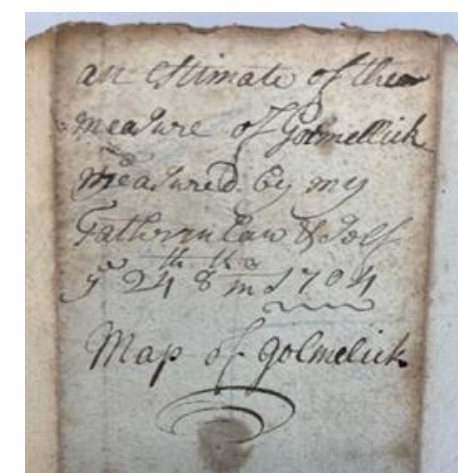 an estimate of the
measure of Golmellick
Measured by my
Father in Law & Self
ye 24th 8th mo 1704
Map of golmelick